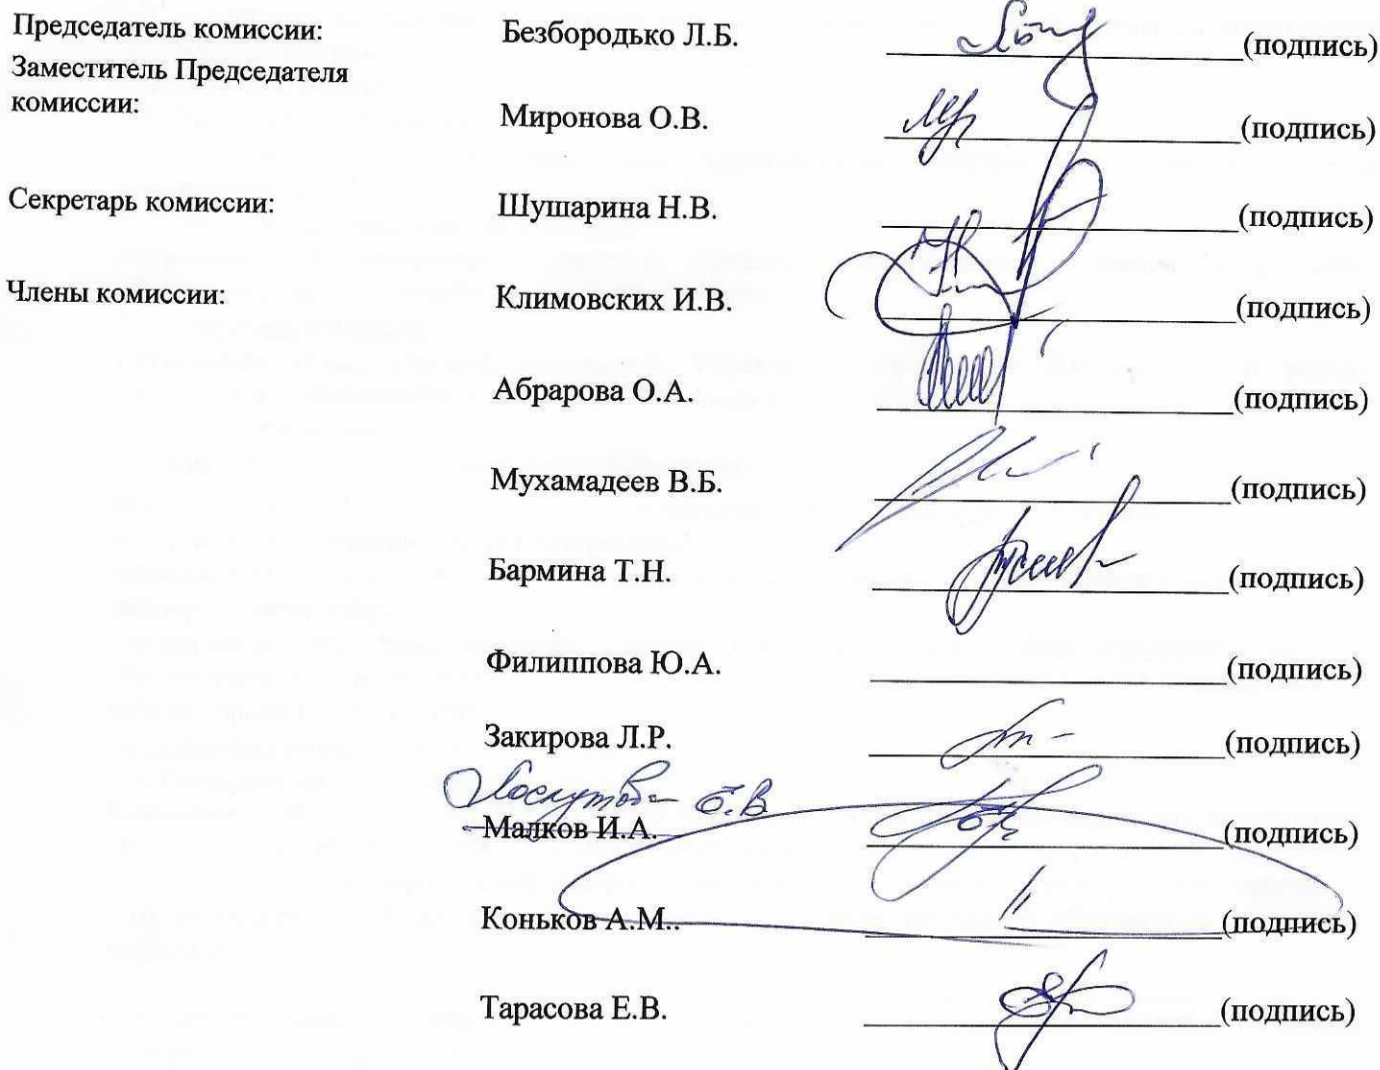 Председатель комиссии: Безбородько Л.Б. (подпись)
Заместитель Председателя
комиссии: Миронова О.В. (подпись)
Секретарь комиссии: Шушарина Н.В. (подпись)
Члены комиссии: Климовских И.В. (подпись)
Абрарова О.А. (подпись)
Мухамадеев В.Б. (подпись)
Бармина Т.Н. (подпись)
Филиппова Ю.А. (подпись)
Закирова Л.Р. (подпись)
Лоскутова Е.В.
Малков И.А. (подпись)
Коньков А.М.. (подпись)
Тарасова Е.В. (подпись)